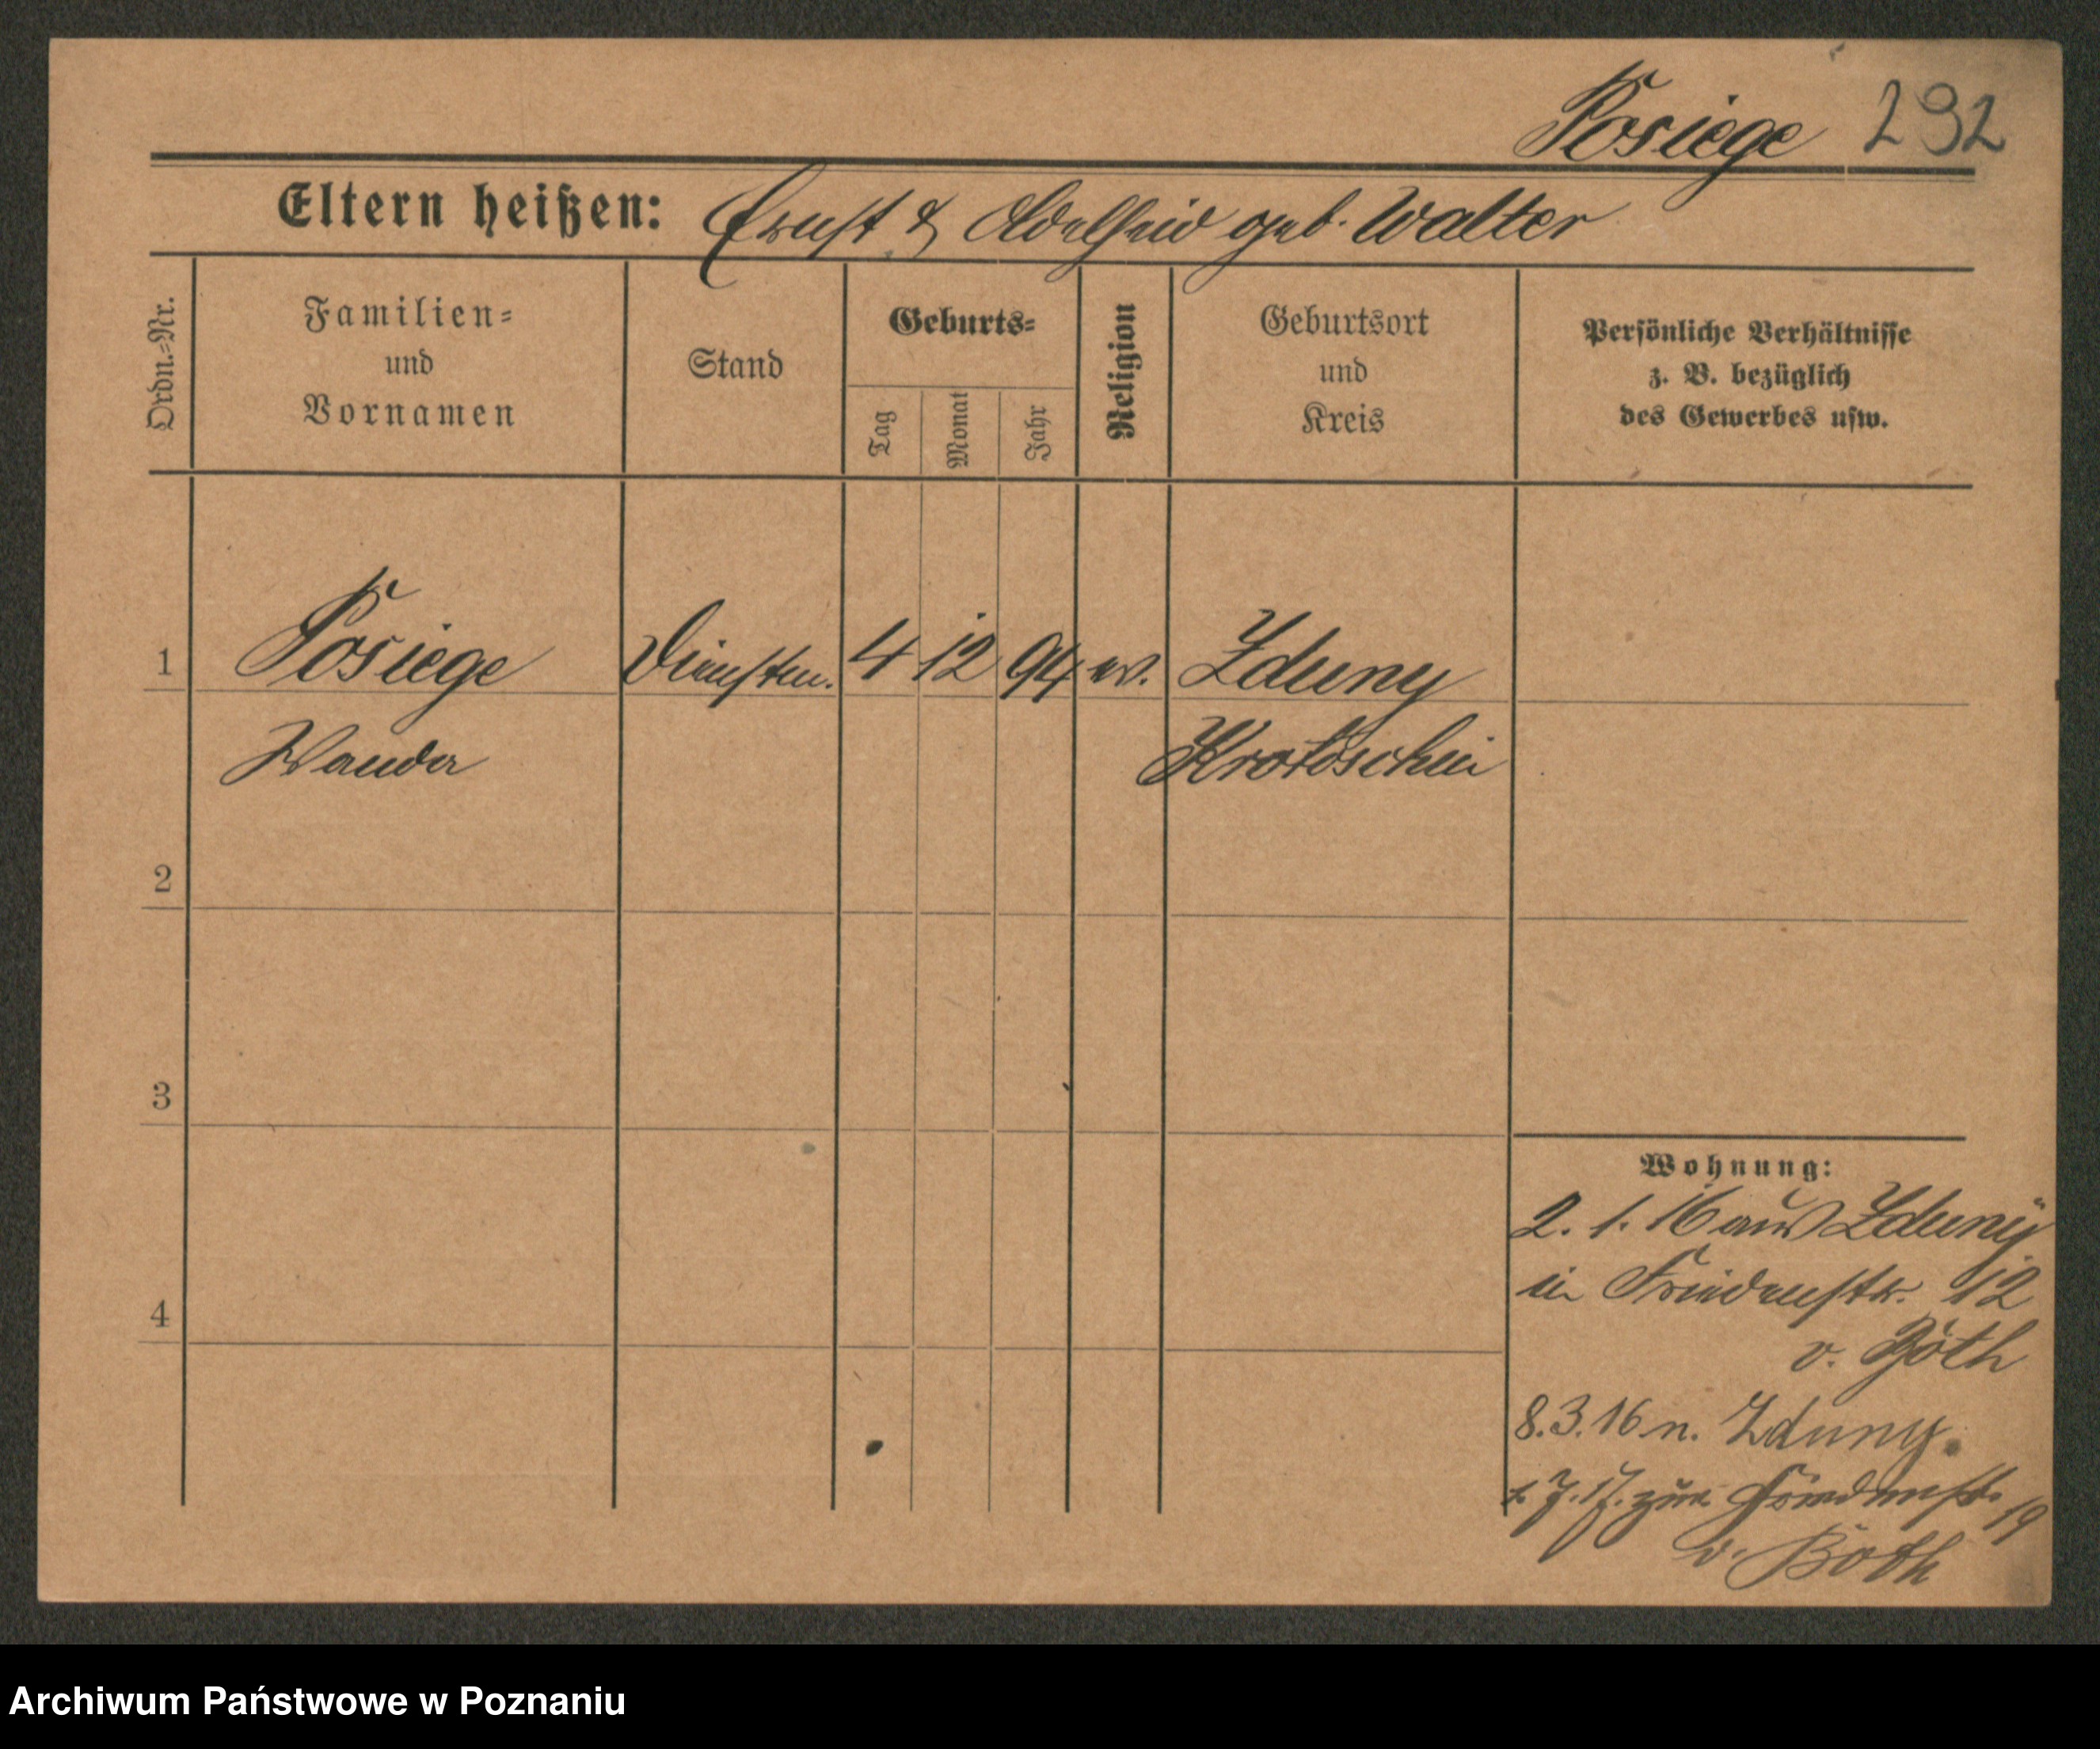 Posiege 292
Eltern heißen: Ernst & Adelheid geb. Walter
Ordn.=Nr.
Familien=
und
Vornamen
Stand
Geburts=
Tag
Monat
Jahr
Religion
Geburtsort
und
Kreis
Persönliche Verhältnisse
z. B. bezüglich
des Gewerbes usw.
1 Posiege Dienstm. 4 12 94 ev. Zduny
Wanda Krotoschin
2
3
4
Wohnung:
2. 1. 16 aus Zduny
in Friedenstr. 12
v. Both
8.3.16 n. Zduny.
7. 17. Friedenstr. 19
v. Both
Archiwum Państwowe w Poznaniu